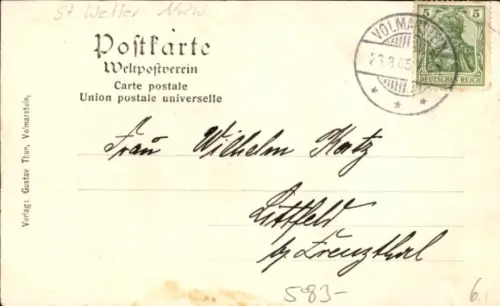 St Wetter NRW
Postkarte
Weltpostverein
Carte postale
Union postale universelle
VOLMARSTEIN
23.8.05
5 5
DEUTSCHES REICH
Verlag: Gustav Thur, Volmarstein.
Frau Wilhelm Katz
Littfeld
b/ Creuzthal
583-
6,